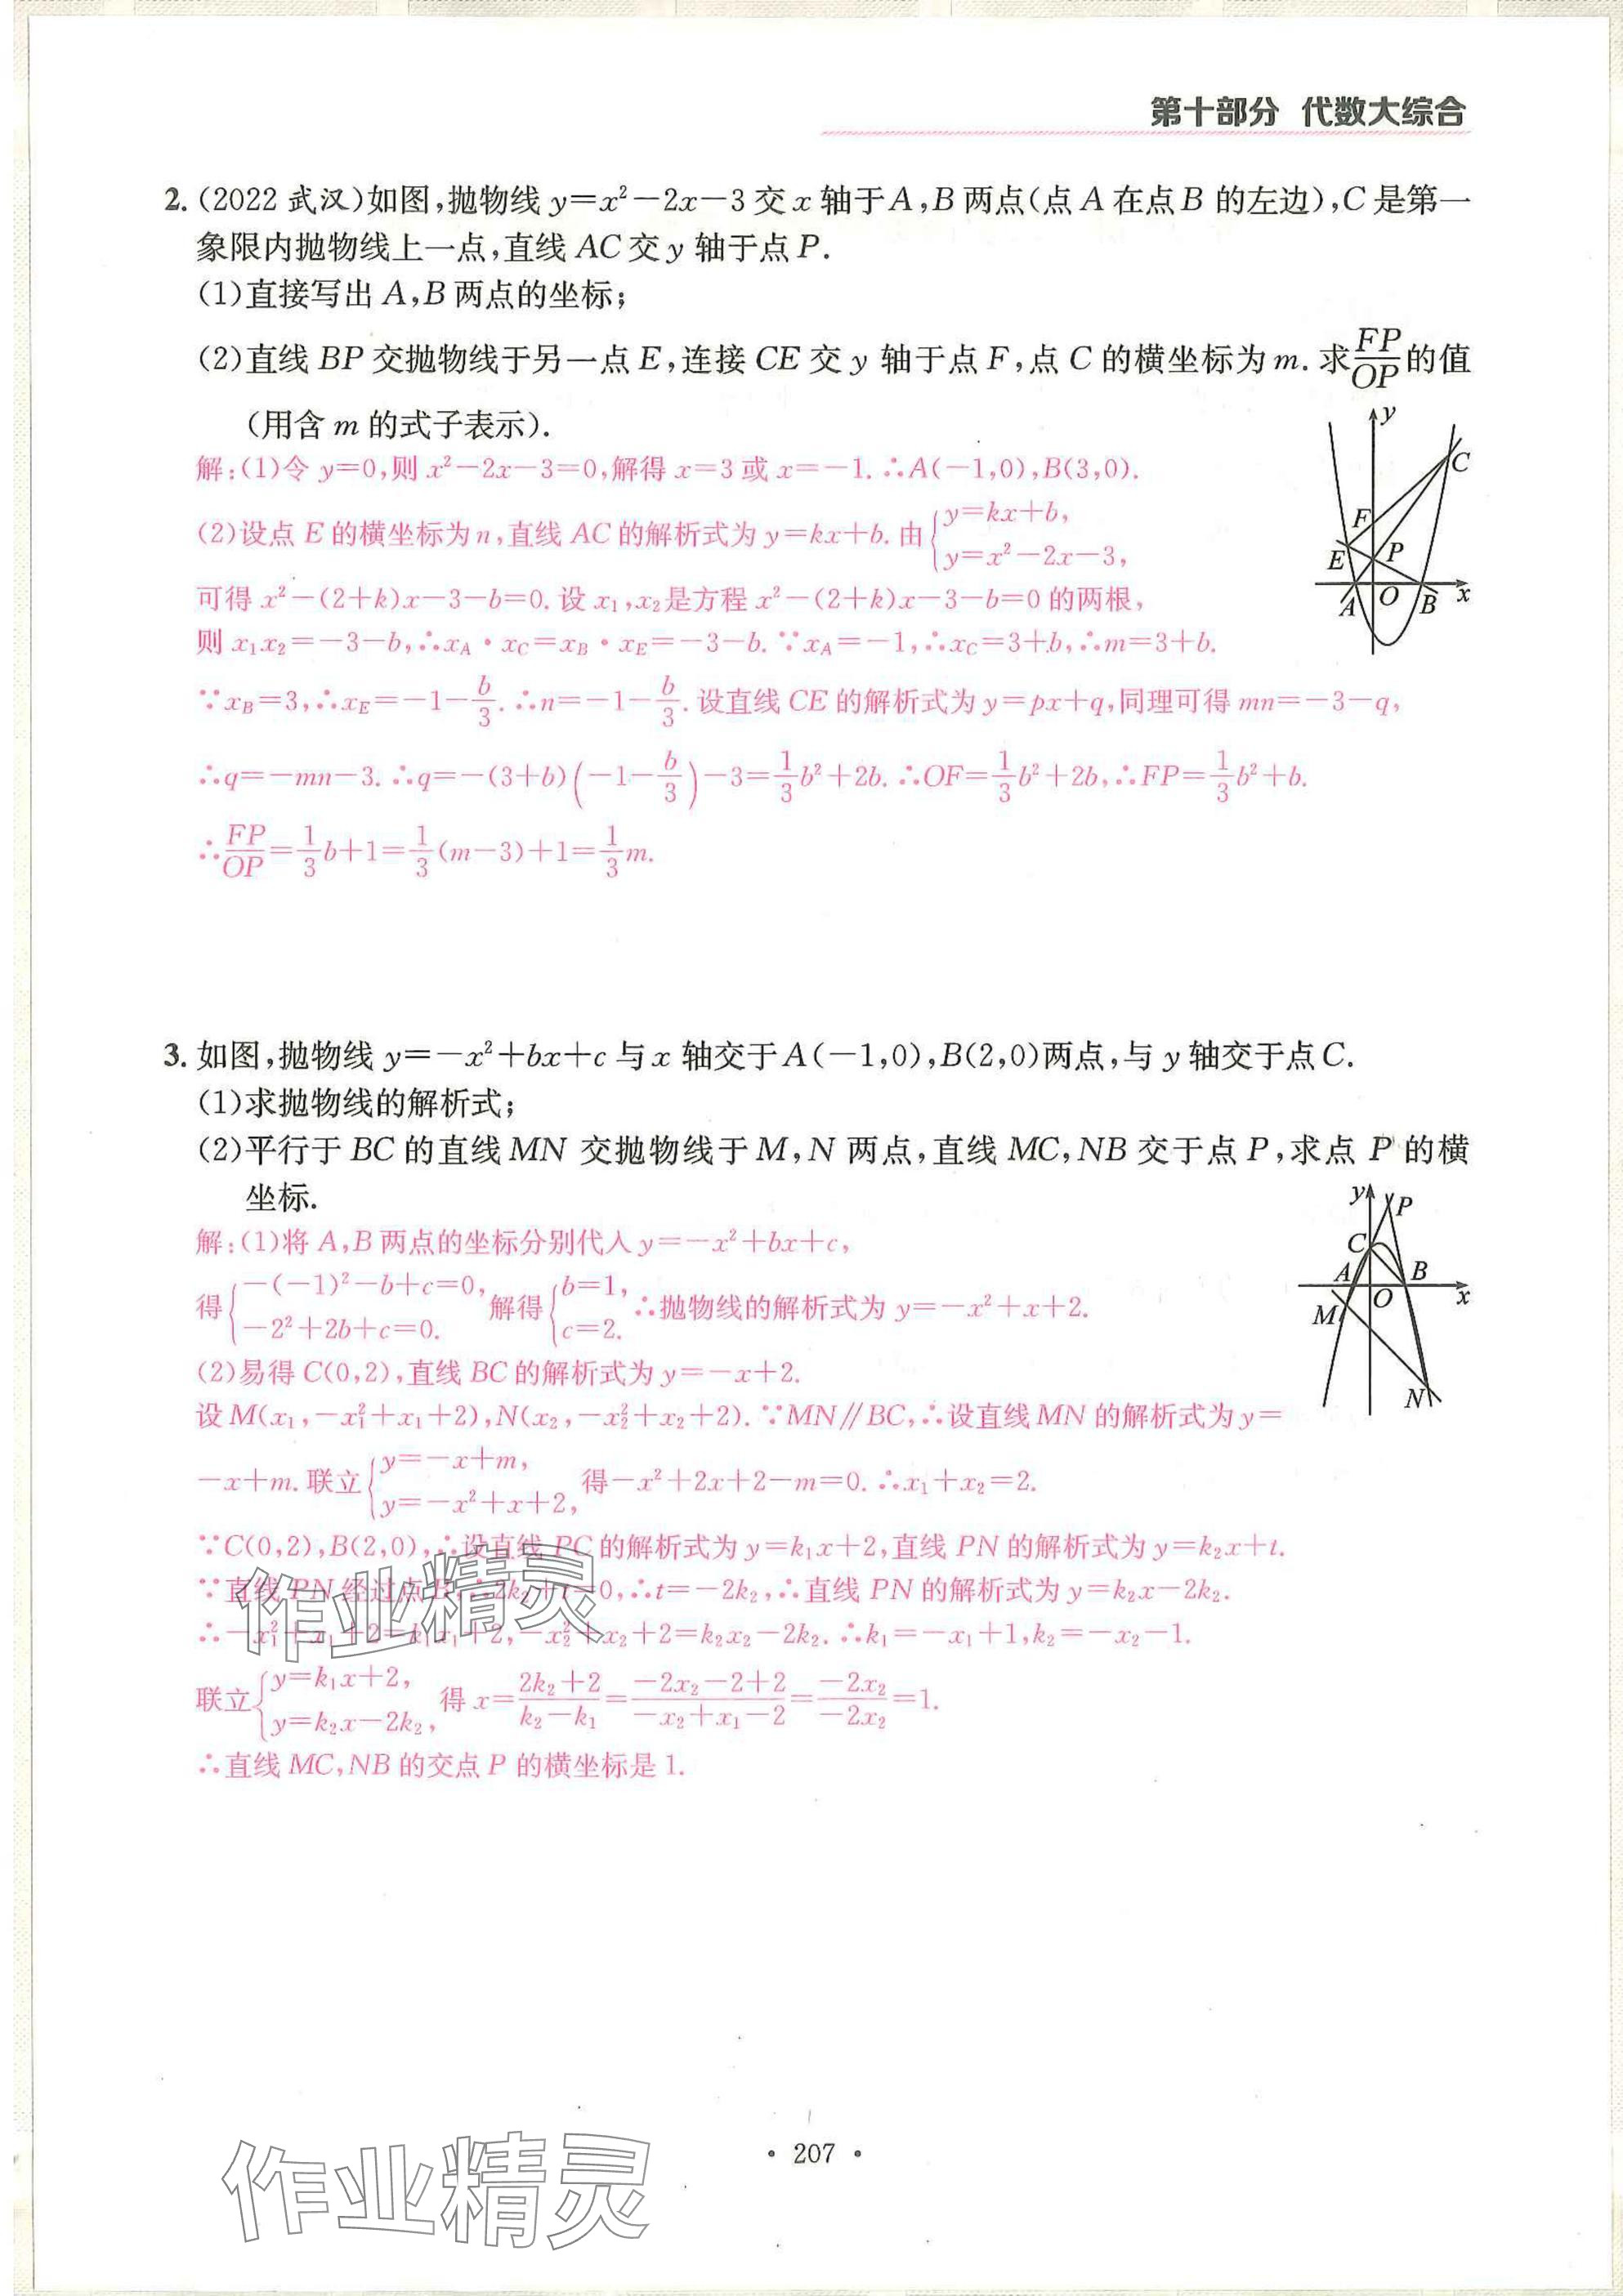 第十部分 代数大综合
2. (2022 武汉)如图,抛物线 y=x²-2x-3 交 x 轴于 A,B 两点(点 A 在点 B 的左边),C 是第一
象限内抛物线上一点,直线 AC 交 y 轴于点 P.
(1)直接写出 A,B 两点的坐标;
(2)直线 BP 交抛物线于另一点 E,连接 CE 交 y 轴于点 F,点 C 的横坐标为 m. 求 FP/OP 的值
(用含 m 的式子表示).
解:(1)令 y=0,则 x²-2x-3=0,解得 x=3 或 x=-1. ∴A(-1,0),B(3,0).
(2)设点 E 的横坐标为 n,直线 AC 的解析式为 y=kx+b. 由{y=kx+b, y=x²-2x-3,
可得 x²-(2+k)x-3-b=0. 设 x₁,x₂是方程 x²-(2+k)x-3-b=0 的两根,
则 x₁x₂=-3-b,∴x_A·x_C=x_B·x_E=-3-b. ∵x_A=-1,∴x_C=3+b,∴m=3+b.
∵x_B=3,∴x_E=-1-b/3. ∴n=-1-b/3. 设直线 CE 的解析式为 y=px+q,同理可得 mn=-3-q,
∴q=-mn-3. ∴q=-(3+b)(-1-b/3)-3=1/3b²+2b. ∴OF=1/3b²+2b,∴FP=1/3b²+b.
∴FP/OP=1/3b+1=1/3(m-3)+1=1/3m.
y
C
F
E
P
A
O
B
x
3. 如图,抛物线 y=-x²+bx+c 与 x 轴交于 A(-1,0),B(2,0)两点,与 y 轴交于点 C.
(1)求抛物线的解析式;
(2)平行于 BC 的直线 MN 交抛物线于 M,N 两点,直线 MC,NB 交于点 P,求点 P 的横
坐标.
解:(1)将 A,B 两点的坐标分别代入 y=-x²+bx+c,
得{-(-1)²-b+c=0, -2²+2b+c=0. 解得{b=1, c=2. ∴抛物线的解析式为 y=-x²+x+2.
(2)易得 C(0,2),直线 BC 的解析式为 y=-x+2.
设 M(x₁,-x₁²+x₁+2),N(x₂,-x₂²+x₂+2). ∵MN∥BC,∴设直线 MN 的解析式为 y=
-x+m. 联立{y=-x+m, y=-x²+x+2, 得-x²+2x+2-m=0. ∴x₁+x₂=2.
∵C(0,2),B(2,0),∴设直线 PC 的解析式为 y=k₁x+2,直线 PN 的解析式为 y=k₂x+t.
∵直线 PN 经过点 B,∴2k₂+t=0,∴t=-2k₂,∴直线 PN 的解析式为 y=k₂x-2k₂.
∴-x₁²+x₁+2=k₁x₁+2,-x₂²+x₂+2=k₂x₂-2k₂. ∴k₁=-x₁+1,k₂=-x₂-1.
联立{y=k₁x+2, y=k₂x-2k₂, 得 x=(2k₂+2)/(k₂-k₁)=(-2x₂-2+2)/(-x₂+x₁-2)=(-2x₂)/(-2x₂)=1.
∴直线 MC,NB 的交点 P 的横坐标是 1.
y
P
C
A
B
O
x
M
N
作业精灵
· 207 ·
作业精灵